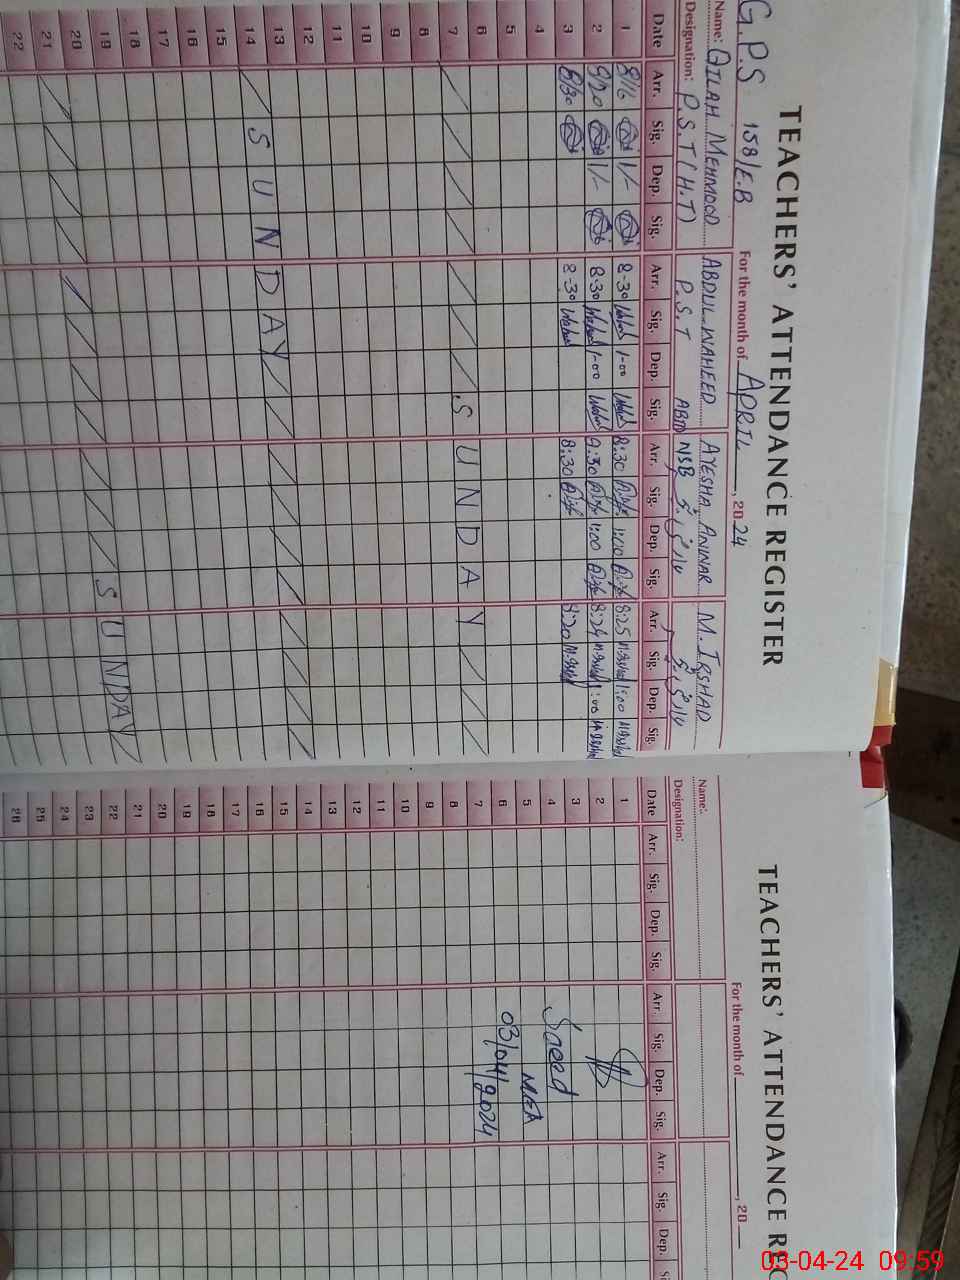 G.P.S 158/E.B
TEACHERS' ATTENDANCE REGISTER
For the month of APRIL, 2024
Name: QILAH MEHMOOD ABDUL WAHEED AYESHA ANWAR M. IRSHAD
Designation: P.S.T (H.T) P.S.T NSB
Date Arr. Sig. Dep. Sig. Arr. Sig. Dep. Sig. Arr. Sig. Dep. Sig. Arr. Sig. Dep. Sig.
1 8/16 1/- 8-30 1-00 8:30 1:00 8:25 1:00
2 1/- 8-30 1-00 1:00 8:24 1:00
3 8/30 8-30 8:30 8:20
4
5
6
7 SUNDAY
8
9
10
11
12
13
14 SUNDAY
15
16
17
18
19
20
21 SUNDAY
22
TEACHERS' ATTENDANCE
For the month of , 20
Name:
Designation:
Date Arr. Sig. Dep. Sig. Arr. Sig. Dep. Sig. Arr. Sig. Dep.
1
2
3
4 Saeed
5 MEA
6 03/04/2024
7
8
9
10
11
12
13
14
15
16
17
18
19
20
21
22
23
24
25
26
03-04-24 09:59